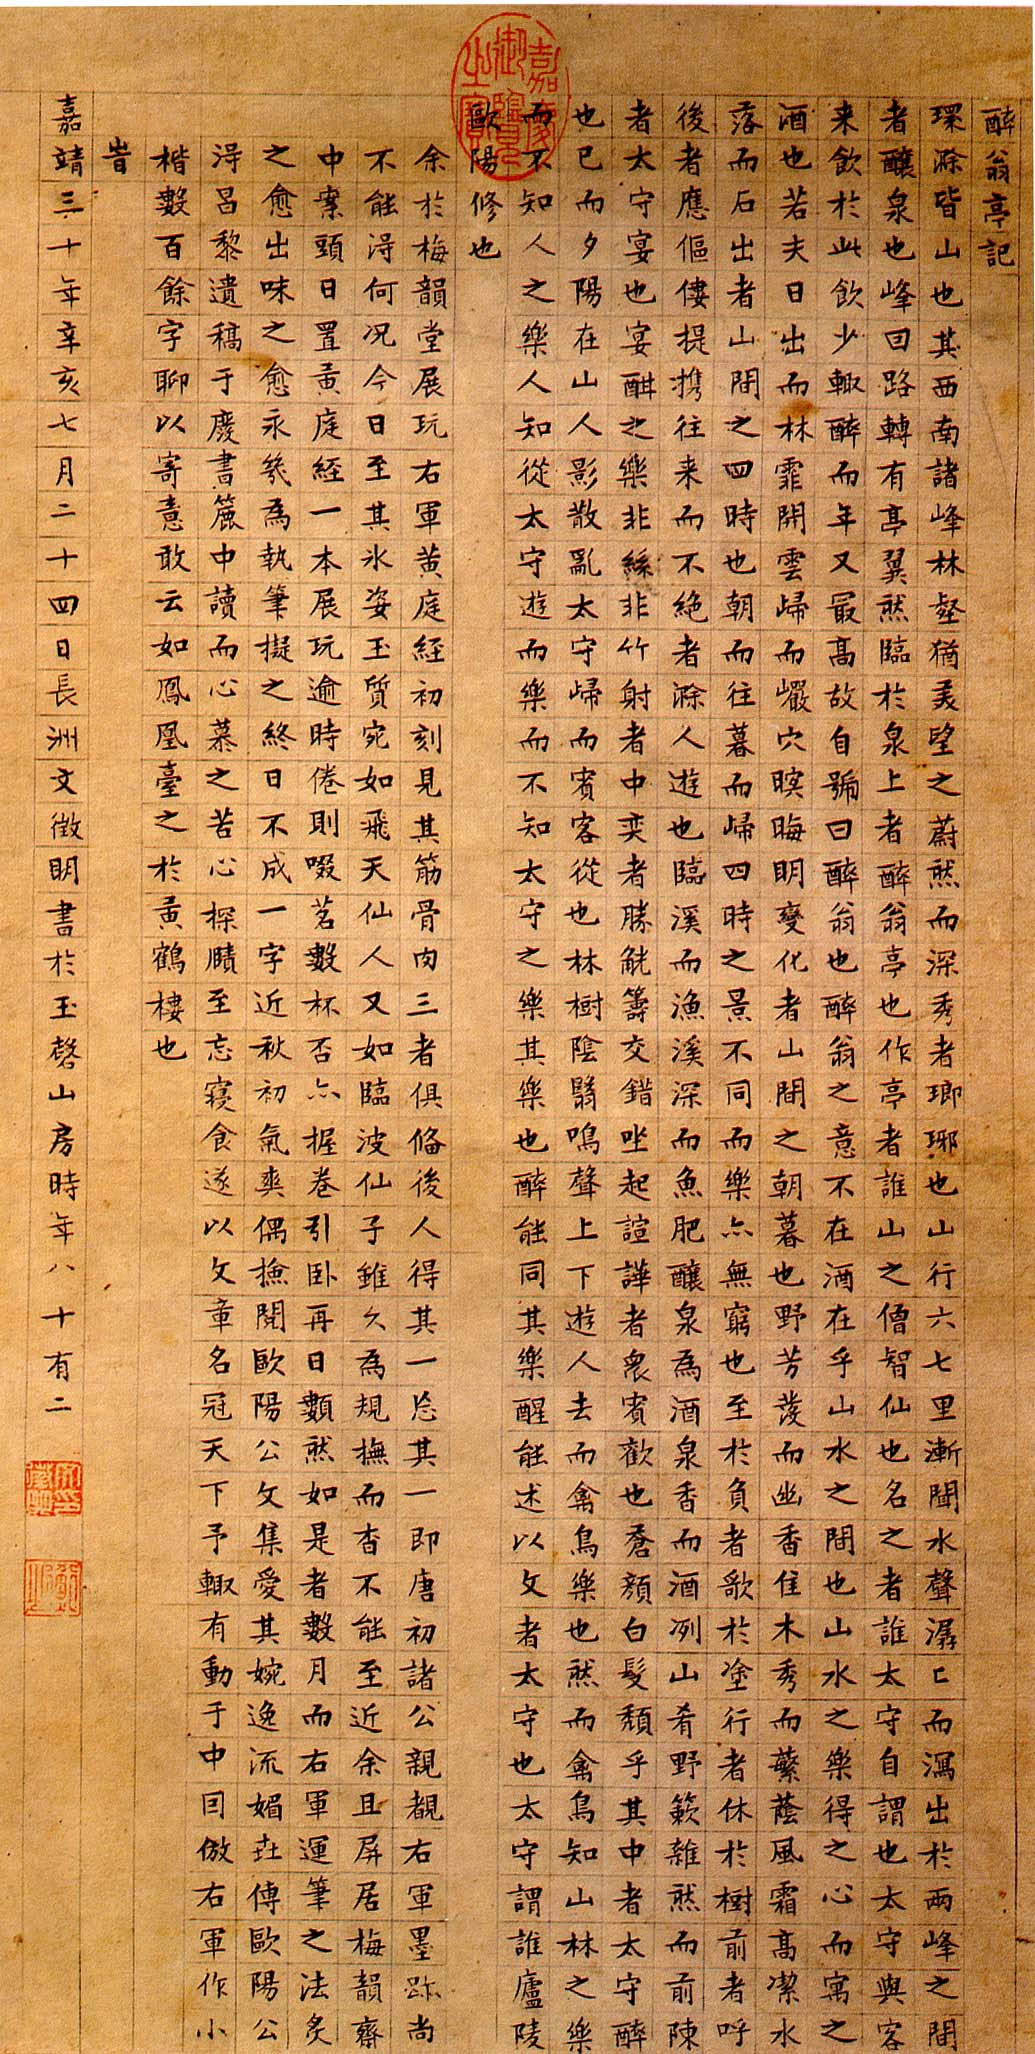 醉翁亭記
環滁皆山也其西南諸峰林壑猶美望之蔚然而深秀者瑯琊也山行六七里漸聞水聲潺〻而瀉出於兩峰之間
者釀泉也峰回路轉有亭翼然臨於泉上者醉翁亭也作亭者誰山之僧智仙也名之者誰太守自謂也太守與客
来飲於此飲少輒醉而年又最高故自號曰醉翁也醉翁之意不在酒在乎山水之間也山水之樂得之心而寓之
酒也若夫日出而林霏開雲歸而巖穴暝晦明變化者山間之朝暮也野芳發而幽香佳木秀而繁蔭風霜高潔水
落而石出者山間之四時也朝而往暮而歸四時之景不同而樂亦無窮也至於負者歌於塗行者休於樹前者呼
後者應傴僂提携往来而不絕者滁人遊也臨溪而漁溪深而魚肥釀泉為酒泉香而酒冽山肴野蔌雜然而前陳
者太守宴也宴酣之樂非絲非竹射者中奕者勝觥籌交錯坐起諠譁者衆賓歡也蒼顏白髮頹乎其中者太守醉
也已而夕陽在山人影散亂太守歸而賓客從也林樹陰翳鳴聲上下遊人去而禽鳥樂也然而禽鳥知山林之樂
而不知人之樂人知從太守遊而樂而不知太守之樂其樂也醉能同其樂醒能述以文者太守也太守謂誰廬陵
歐陽修也
余於梅韻堂展玩右軍黄庭經初刻見其筋骨肉三者俱俻後人得其一忘其一即唐初諸公親覩右軍墨跡尚
不能得何况今日至其氷姿玉質宛如飛天仙人又如臨波仙子雖久為規撫而杳不能至近余且屏居梅韻齋
中案頭日置黄庭經一本展玩逾時倦則啜茗數杯否亦握卷引臥再日顴然如是者數月而右軍運筆之法炙
之愈出味之愈永幾為執筆擬之終日不成一字近秋初氣爽偶撿閱歐陽公文集愛其婉逸流媚世傳歐陽公
得昌黎遺稿于廢書簏中讀而心慕之苦心探賾至忘寢食遂以文章名冠天下予輒有動于中因倣右軍作小
楷數百餘字聊以寄意敢云如鳳凰臺之於黄鶴樓也
旹
嘉靖三十年辛亥七月二十四日長洲文徵明書於玉磬山房時年八十有二
嘉慶御覽之寶
文徵明印
衡山